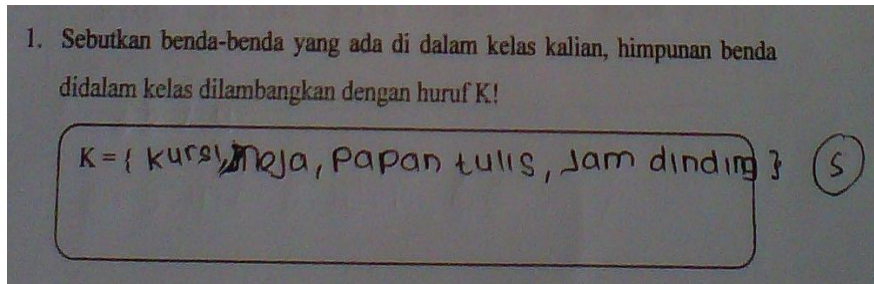 1. Sebutkan benda-benda yang ada di dalam kelas kalian, himpunan benda
didalam kelas dilambangkan dengan huruf K!
K = { kursi, meja, papan tulis, Jam dinding } S